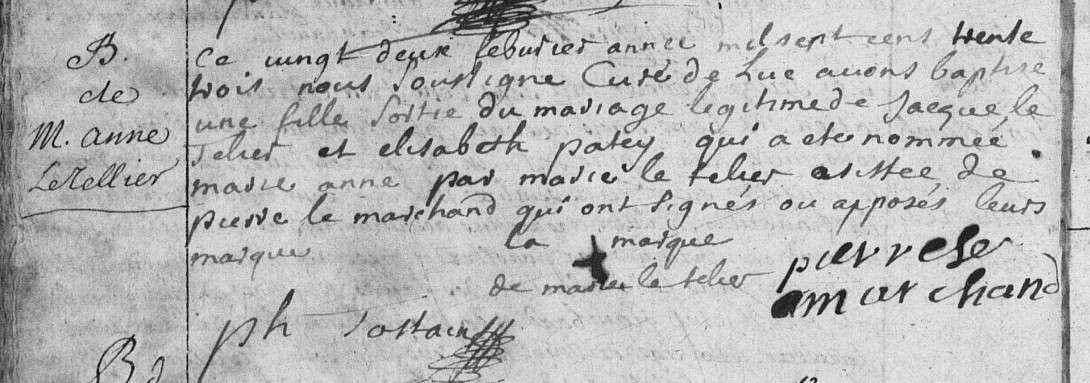 B.
de
M. anne
LeTellier
Ce vingt deux feburier annee mil sept cens trente
trois nous soussigne Curé de Luc avons baptise
une fille sortie du mariage legitime de Jacque le
Telier et elisabeth patey qui a ete nommee
marie anne par marie le telier asistee de
pierre le marchand qui ont signés ou apposés leurs
marque la marque
de marie le telier
pierre le
marchand
ph
B d